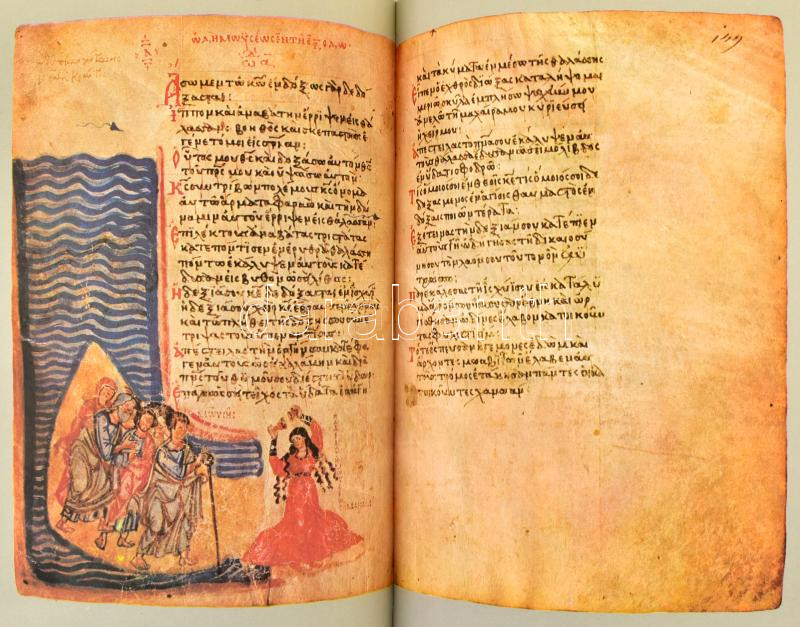 ὠδὴ Μωυσέως ἐν τῇ ἐξόδω·
ὠδὴ α
Ασωμεν τῶ κω ἐνδόξως γὰρ δεδό
ξασται:
Ιππον καὶ ἀναβάτην ἔρριψεν εἰς θά
λασσαν: βοηθὸς καὶ σκεπαστὴς ἐ
γένετό μοι εἰς σρίαν:
Οὗτός μου θς καὶ δοξάσω αὐτὸν θς
τοῦ πρς μου καὶ ὑψώσω αὐτόν:
Κς συντρίβων πολέμους κς ὄνομα
αὐτῶ ἅρματα Φαραὼ καὶ τὴν δύ
ναμιν αὐτοῦ ἔρριψεν εἰς θάλασσαν:
Επιλέκτους ἀναβάτας τριστάτας
κατεπόντισεν ἐν ἐρυθρᾶ θαλάσση
πόντω ἐκάλυψεν αὐτούς κατέ
δυσαν εἰς βυθὸν ὡσεὶ λίθος:
Η δεξιά σου κε δεδόξασται ἐν ἰσχύϊ
ἡ δεξιά σου χεὶρ κε ἔθραυσεν ἐχθρούς
καὶ τῶ πλήθει τῆς δόξης σου συνέ
τριψας τοὺς ὑπεναντίους:
Απέστειλας τὴν ὀργήν σου καὶ κατέφα
γεν αὐτοὺς ὡς καλάμην καὶ διὰ
πνς τοῦ θυμοῦ σου διέστη τὸ ὕδωρ:
Επάγη ὡσεὶ τεῖχος τὰ ὕδατα ἐπάγη
ΜΩΥΣΗΣ
149
καὶ τὰ κύματα ἐν μέσω τῆς θαλάσσης
Εἶπεν ὁ ἐχθρὸς διώξας καταλήψομαι
μεριῶ σκῦλα ἐμπλήσω ψυχήν μου
ἀνελῶ τῆ μαχαίρα μου κυριεύσει
ἡ χείρ μου:
Απέστειλας τὸ πνα σου ἐκάλυψεν αὐ
τοὺς θάλασσα ἔδυσαν ὡσεὶ μόλιβδος
ἐν ὕδατι σφοδρῶ:
Τίς ὅμοιός σοι ἐν θεοῖς κε τίς ὅμοιός σοι δε
δοξασμένος ἐν ἁγίοις θαυμαστὸς ἐν
δόξαις ποιῶν τέρατα:
Εξέτεινας τὴν δεξιάν σου κατέπιεν
αὐτοὺς γῆ ὡδήγησας τῆ δικαιοσύ
νη σου τὸν λαόν σου τοῦτον ὃν ἐλυ
τρώσω:
Παρεκάλεσας τῆ ἰσχύϊ σου εἰς κατάλυ
μα ἅγιόν σου ἤκουσαν ἔθνη καὶ ὠρ
γίσθησαν ὠδῖνες ἔλαβον κατοικοῦν
τας
Τότε ἔσπευσαν ἡγεμόνες Εδὼμ καὶ
ἄρχοντες Μωαβιτῶν ἔλαβεν αὐ
τοὺς τρόμος ἐτάκησαν πάντες οἱ κα
τοικοῦντες Χαναάν:
darabanth